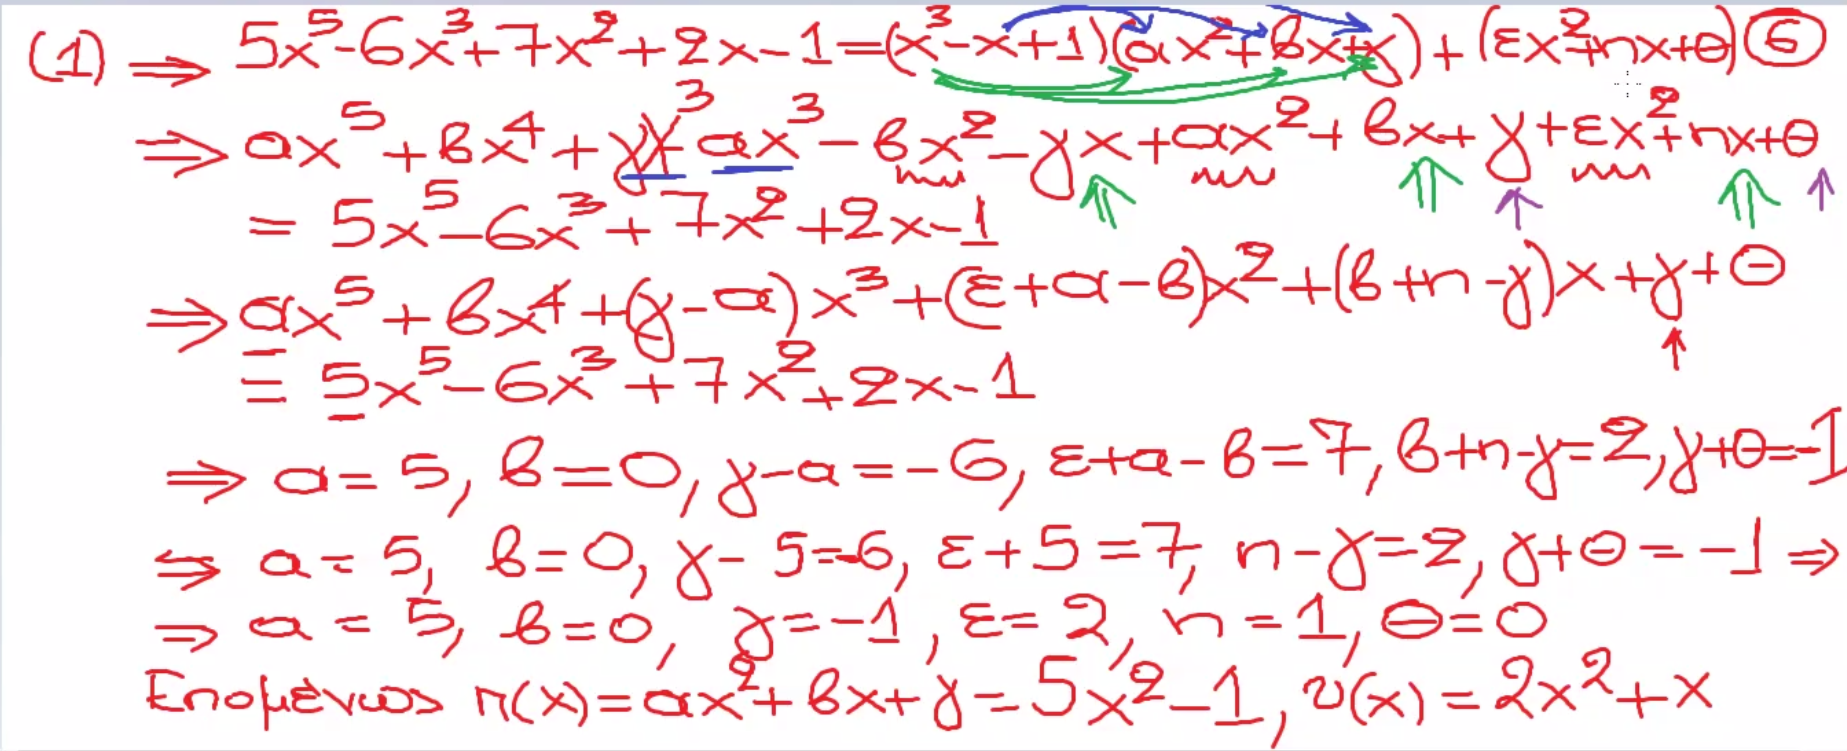 (1) ⇒ 5x⁵-6x³+7x²+2x-1=(x³-x+1)(αx²+βx+γ)+(εx²+ηx+θ) 6
⇒ αx⁵+βx⁴+γx³-αx³-βx²-γx+αx²+βx+γ+εx²+ηx+θ
= 5x⁵-6x³+7x²+2x-1
⇒ αx⁵+βx⁴+(γ-α)x³+(ε+α-β)x²+(β+η-γ)x+γ+θ
= 5x⁵-6x³+7x²+2x-1
⇒ α=5, β=0, γ-α=-6, ε+α-β=7, β+η-γ=2, γ+θ=-1
⇔ α=5, β=0, γ-5=-6, ε+5=7, η-γ=2, γ+θ=-1 ⇒
⇒ α=5, β=0, γ=-1, ε=2, η=1, θ=0
Επομένως π(x)=αx²+βx+γ=5x²-1, υ(x)=2x²+x